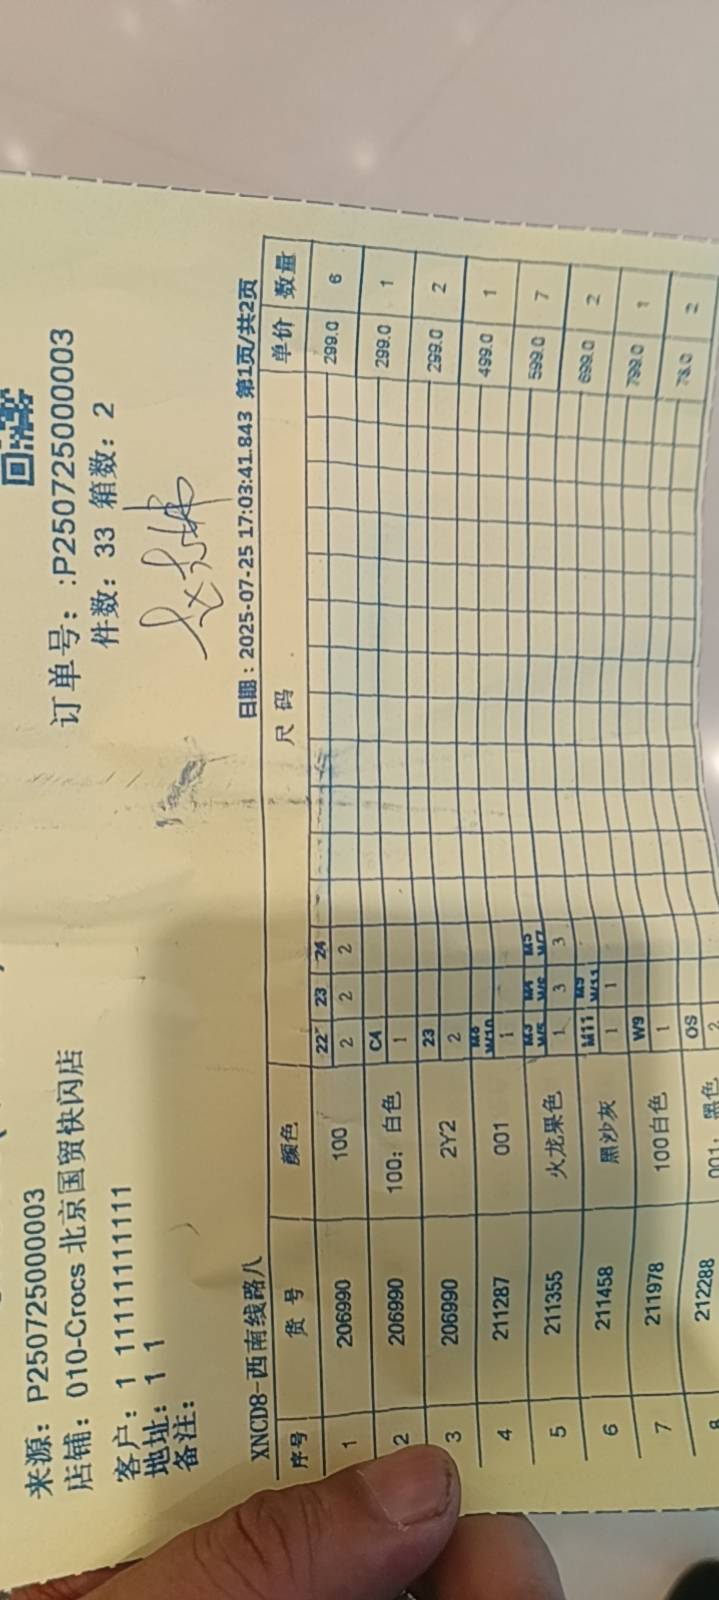 来源: P250725000003
订单号: :P250725000003
店铺: 010-Crocs 北京国贸快闪店
件数: 33 箱数: 2
客户: 1 11111111111
地址: 1 1
备注:
XNCD8-西南线路八 日期: 2025-07-25 17:03:41.843 第1页/共2页
序号 货号 颜色 尺码 单价 数量
22 23 24
1 206990 100 2 2 2 299.0 6
C4
2 206990 100: 白色 1 299.0 1
23
3 206990 2Y2 2 299.0 2
M8 W10
4 211287 001 1 499.0 1
M3 W5 M4 W6 M5 W7
5 211355 火龙果色 1 3 3 599.0 7
M11 M9 W11
6 211458 黑沙灰 1 1 699.0 2
W9
7 211978 100白色 1 799.0 1
OS
8 212288 001: 黑色 2 78.0 2